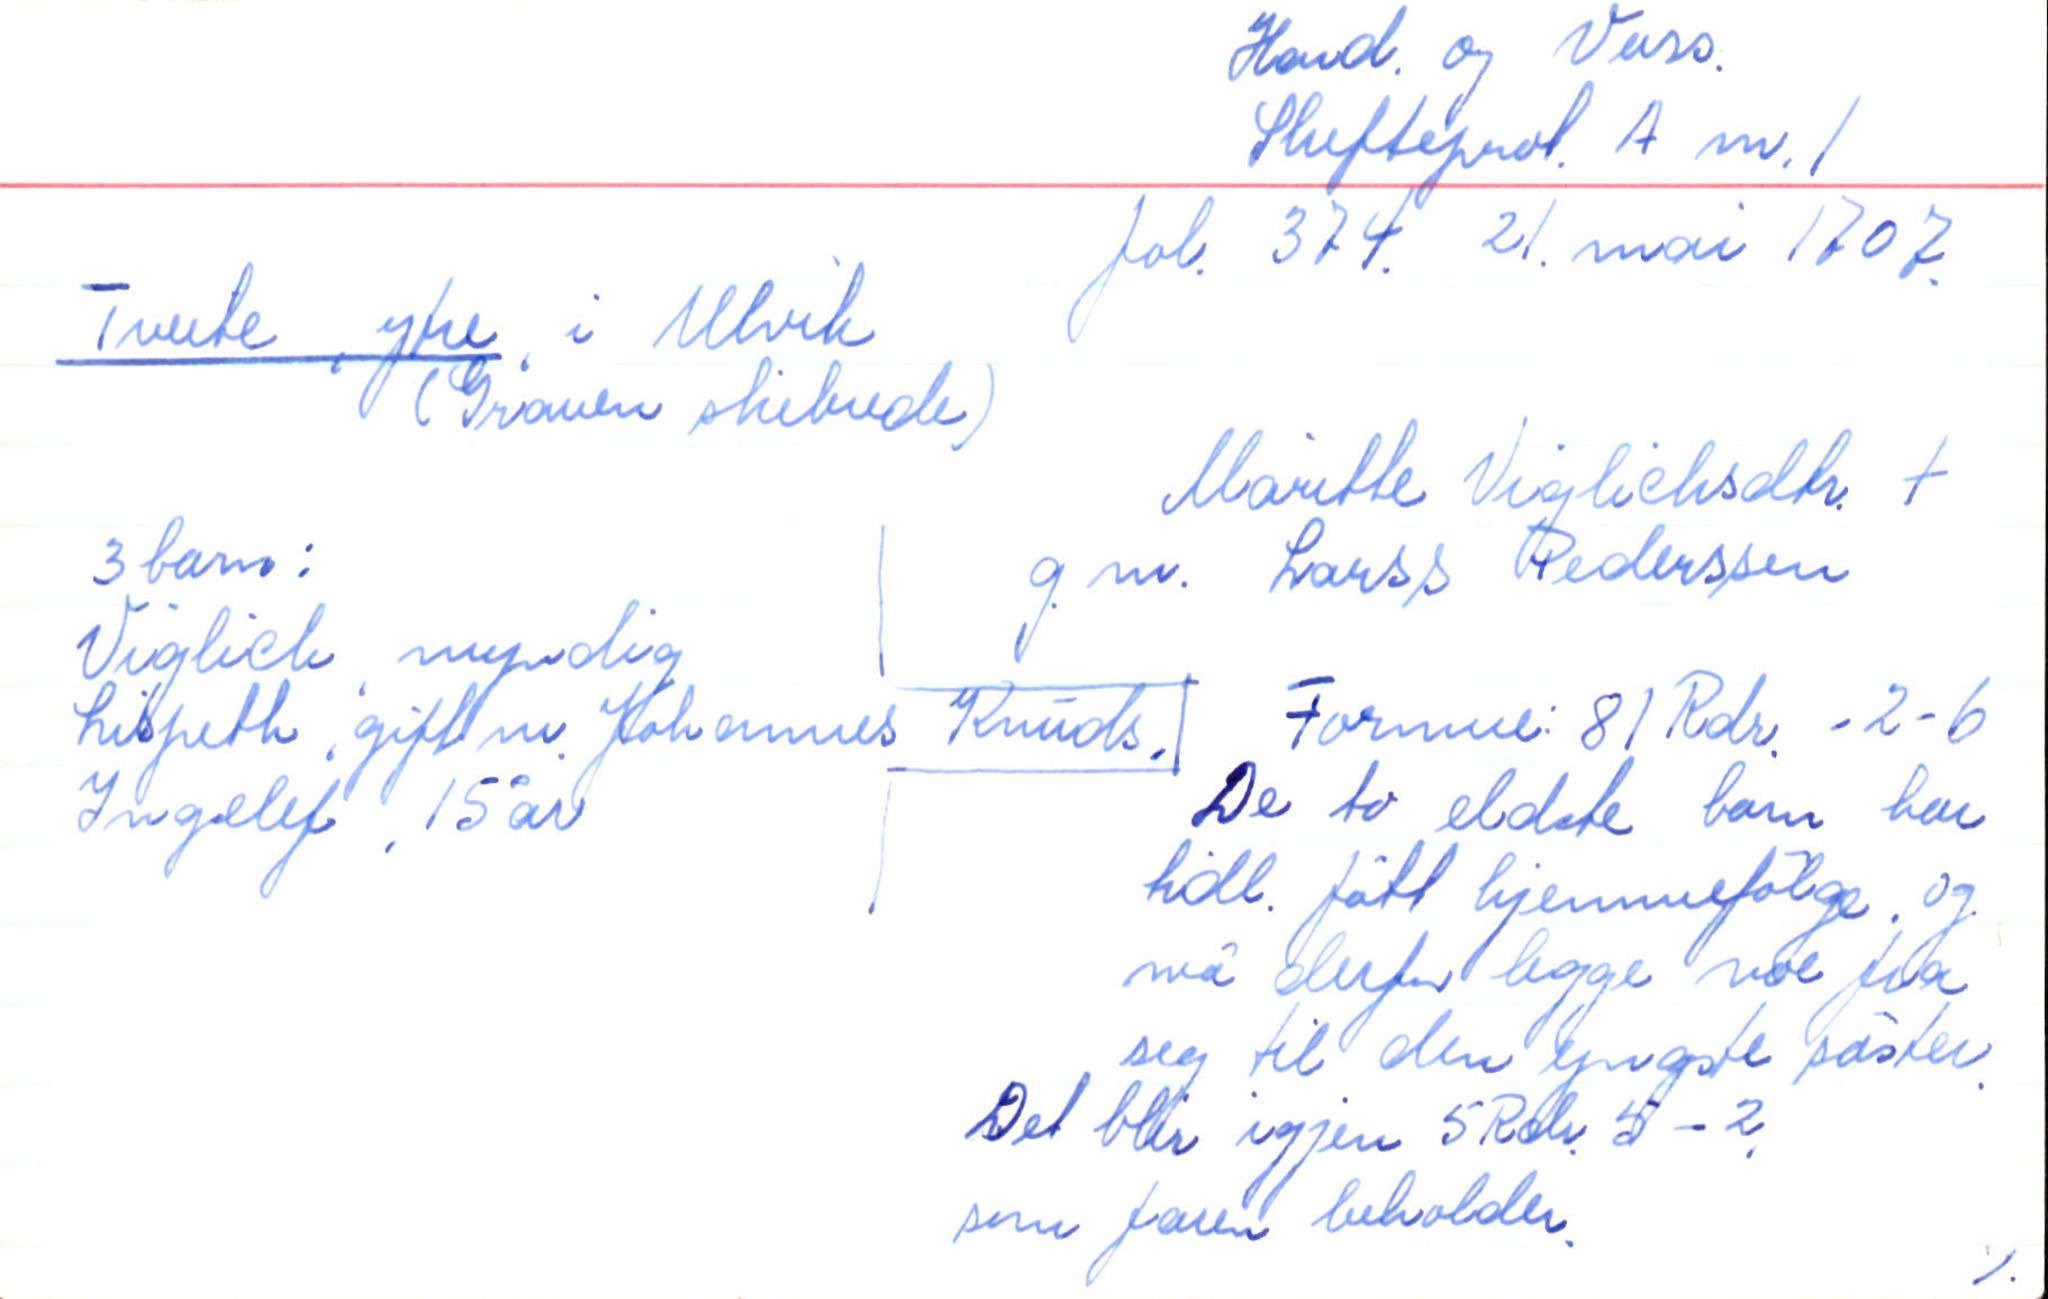 Hard. og Voss.
Skifteprot. A nr. 1
fol. 374. 21. mai 1707.
Tveite, ytre, i Ulvik
(Graven skibrede)
Maritte Viglichsdtr. †
g. m. Larss Pederssen
3 barn:
Viglich, myndig
Lispeth, gift m. Johannes Knuds.
Ingelef, 15 år
Formue: 81 Rdr. -2-6
De to eldste barn har
tidl. fått hjemmefölge, og
må derfor legge noe fra
seg til den yngste söster.
Det blir igjen 5 Rdr. 5 - 2,
som faren beholder.